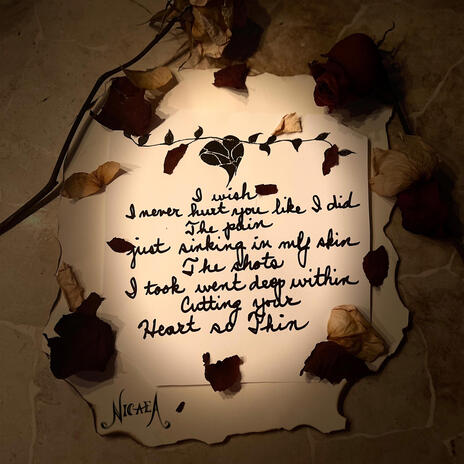 I wish
I never hurt you like I did
The pain
just sinking in my skin
The shots
I took went deep within
Cutting your
Heart so Thin
NICAEA